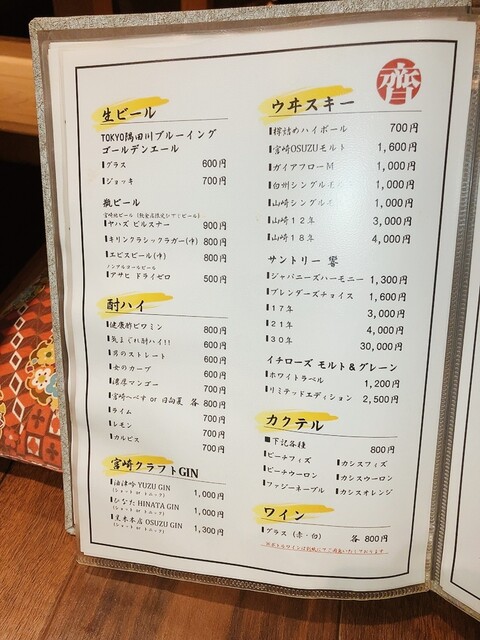 生ビール
TOKYO隅田川ブルーイング
ゴールデンエール
グラス 600円
ジョッキ 700円
瓶ビール
ヤハズ ピルスナー 900円
キリンクラシックラガー(中) 800円
エビスビール(中) 800円
ノンアルコールビール
アサヒ ドライゼロ 500円
酎ハイ
健康酢ビワミン 800円
気まぐれ酎ハイ!! 600円
男のストレート 600円
女のカーブ 600円
濃厚マンゴー 700円
宮崎へべす or 日向夏 各 800円
ライム 700円
レモン 700円
カルピス 700円
宮崎クラフトGIN
油津吟 YUZU GIN 1,000円
(ショット or トニック)
ひなた HINATA GIN 1,000円
(ショット or トニック)
尾鈴 OSUZU GIN 1,300円
(ショット or トニック)
齊
ウヰスキー
樽詰めハイボール 700円
宮崎OSUZUモルト 1,600円
ガイアフローM 1,000円
白州シングルモ 1,000円
山崎シングル 1,000円
山崎12年 3,000円
山崎18年 4,000円
サントリー 響
ジャパニーズハーモニー 1,300円
ブレンダーズチョイス 1,600円
17年 3,000円
21年 4,000円
30年 30,000円
イチローズ モルト&グレーン
ホワイトラベル 1,200円
リミテッドエディション 2,500円
カクテル
■下記各種 800円
ピーチフィズ カシスフィズ
ピーチウーロン カシスウーロン
ファジーネーブル カシスオレンジ
ワイン
グラス (赤・白) 各 800円